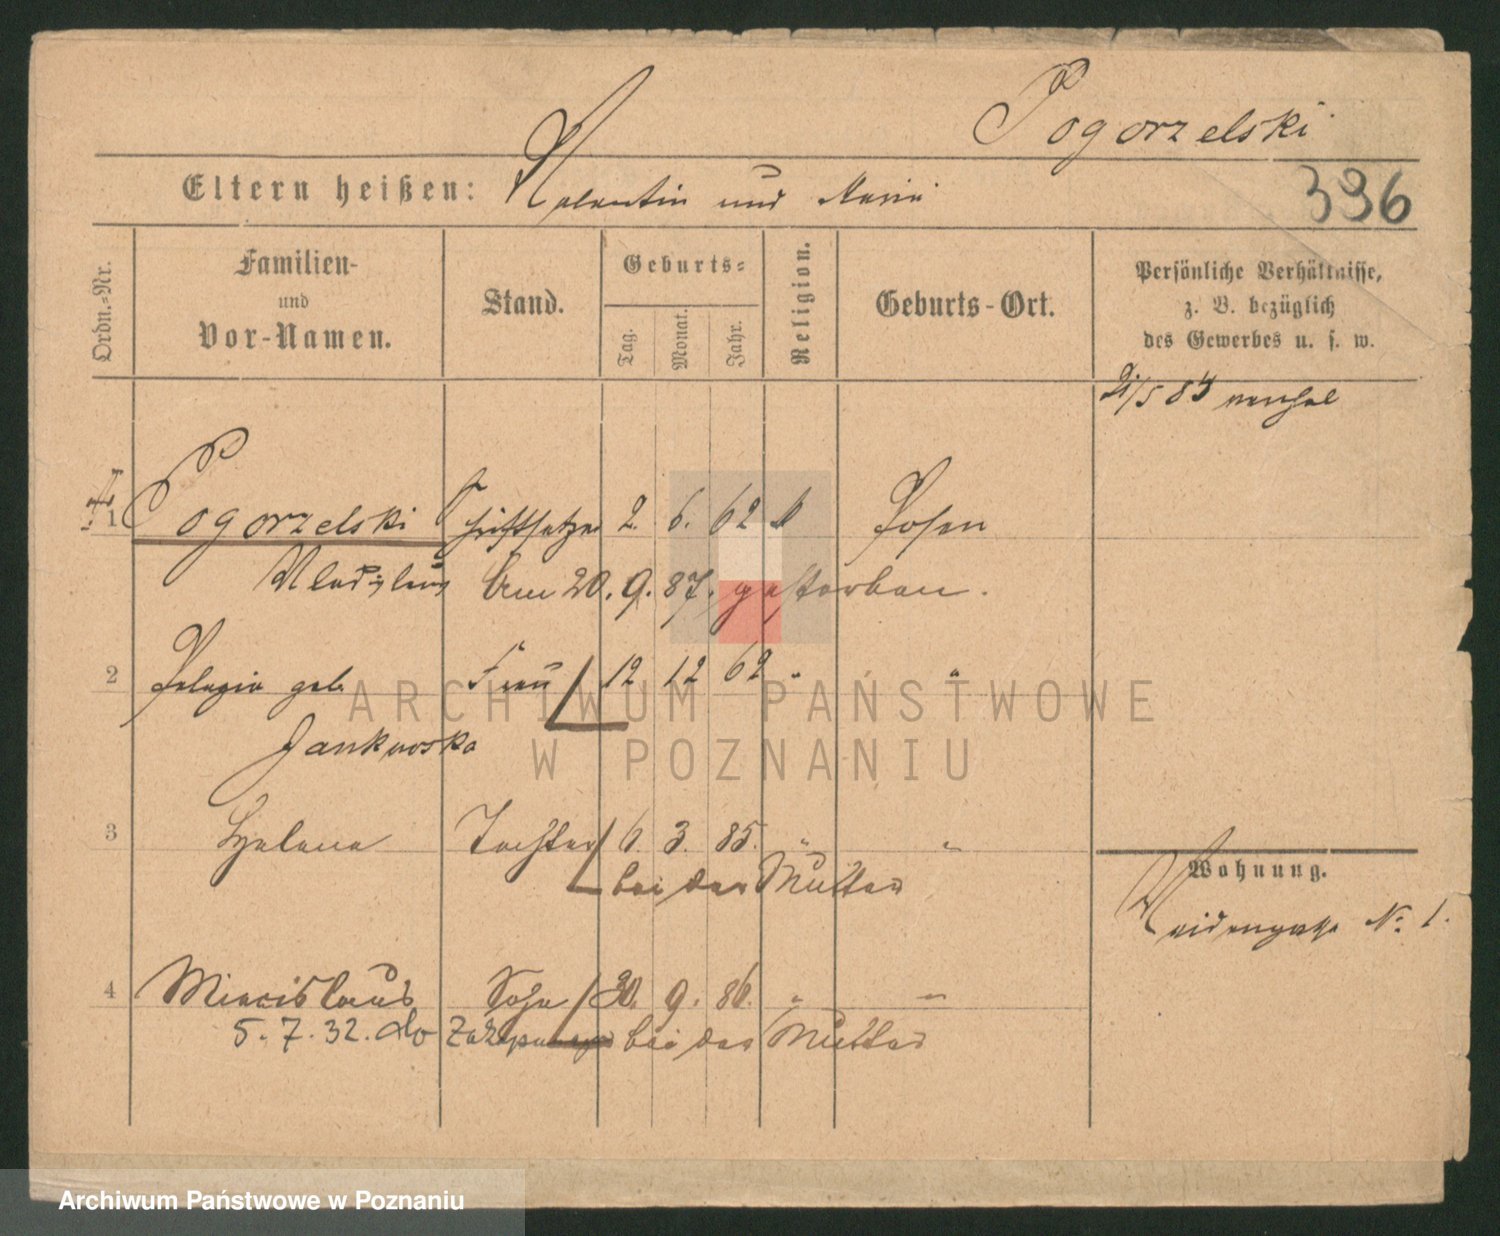 Pogorzelski
Eltern heißen: Valentin und Maria
396
Ordn.-Nr.
Familien-
und
Vor-Namen.
Stand.
Geburts-
Tag.
Monat.
Jahr.
Religion.
Geburts-Ort.
Persönliche Verhältnisse,
z. B. bezüglich
des Gewerbes u. s. w.
1 Pogorzelski Schriftsetzer 2. 6. 62 k Posen
Wladislaus Am 20. 9. 87. gestorben.
2 Pelagia geb. Frau 12 12 62 " "
Jankowska
3 Helena Tochter 6. 3. 85. " "
bei der Mutter
Wohnung.
Weidengasse No 1.
4 Miecislaus Sohn 30. 9. 86. " "
5. 7. 32. do bei der Mutter
ARCHIWUM PAŃSTWOWE
W POZNANIU
Archiwum Państwowe w Poznaniu